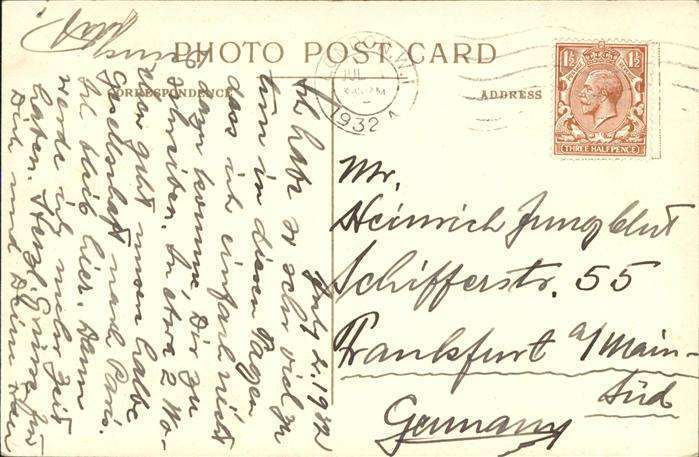 PHOTO POST CARD
CORRESPONDENCE
ADDRESS
JUL
1932
1½ 1½
THREE HALFPENCE
July 2. 1932
Ich habe so sehr viel zu
tun in diesen Tagen
dass ich einfach nicht
dazu komme, Dir zu
schreiben. In etwa 2 Wo-
chen geht unsere halbe
Gesellschaft nach Paris.
Ich bleib hier. Dann
werde ich mehr Zeit
haben. Herzl. Grüsse für
Dich und Deine
Mr.
Heinrich Jungblut
Schifferstr. 55
Frankfurt a/Main-
Süd
Germany